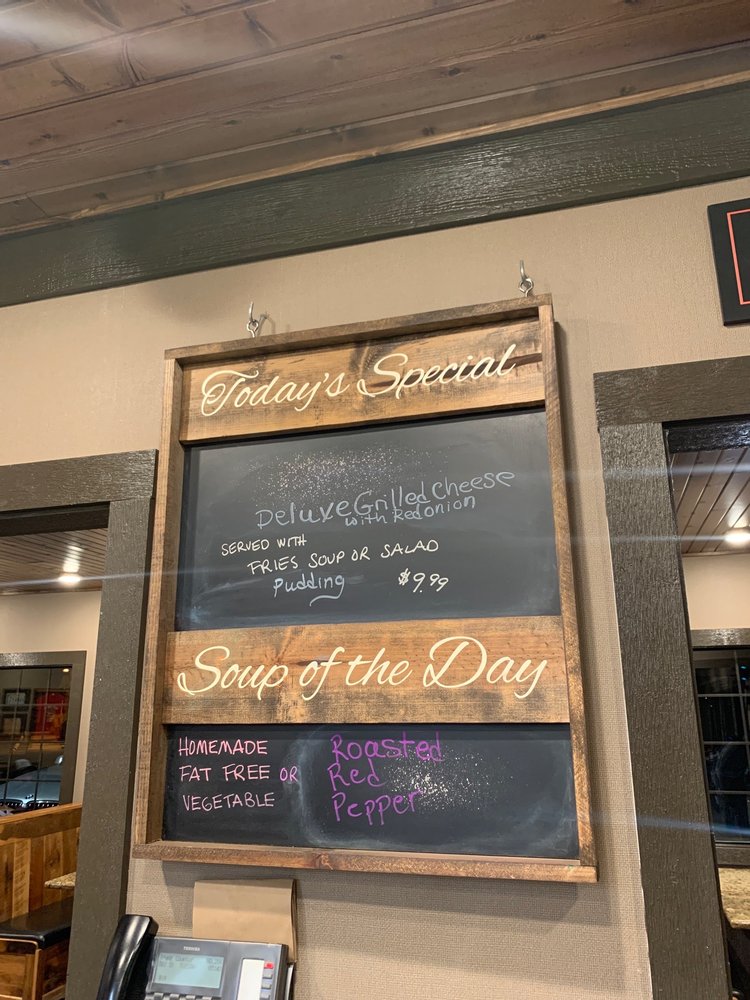 Today's Special
Deluxe Grilled Cheese
with Red onion
SERVED WITH
FRIES SOUP OR SALAD
Pudding $9.99
Soup of the Day
HOMEMADE
FAT FREE OR
VEGETABLE
Roasted
Red
Pepper
TOSHIBA